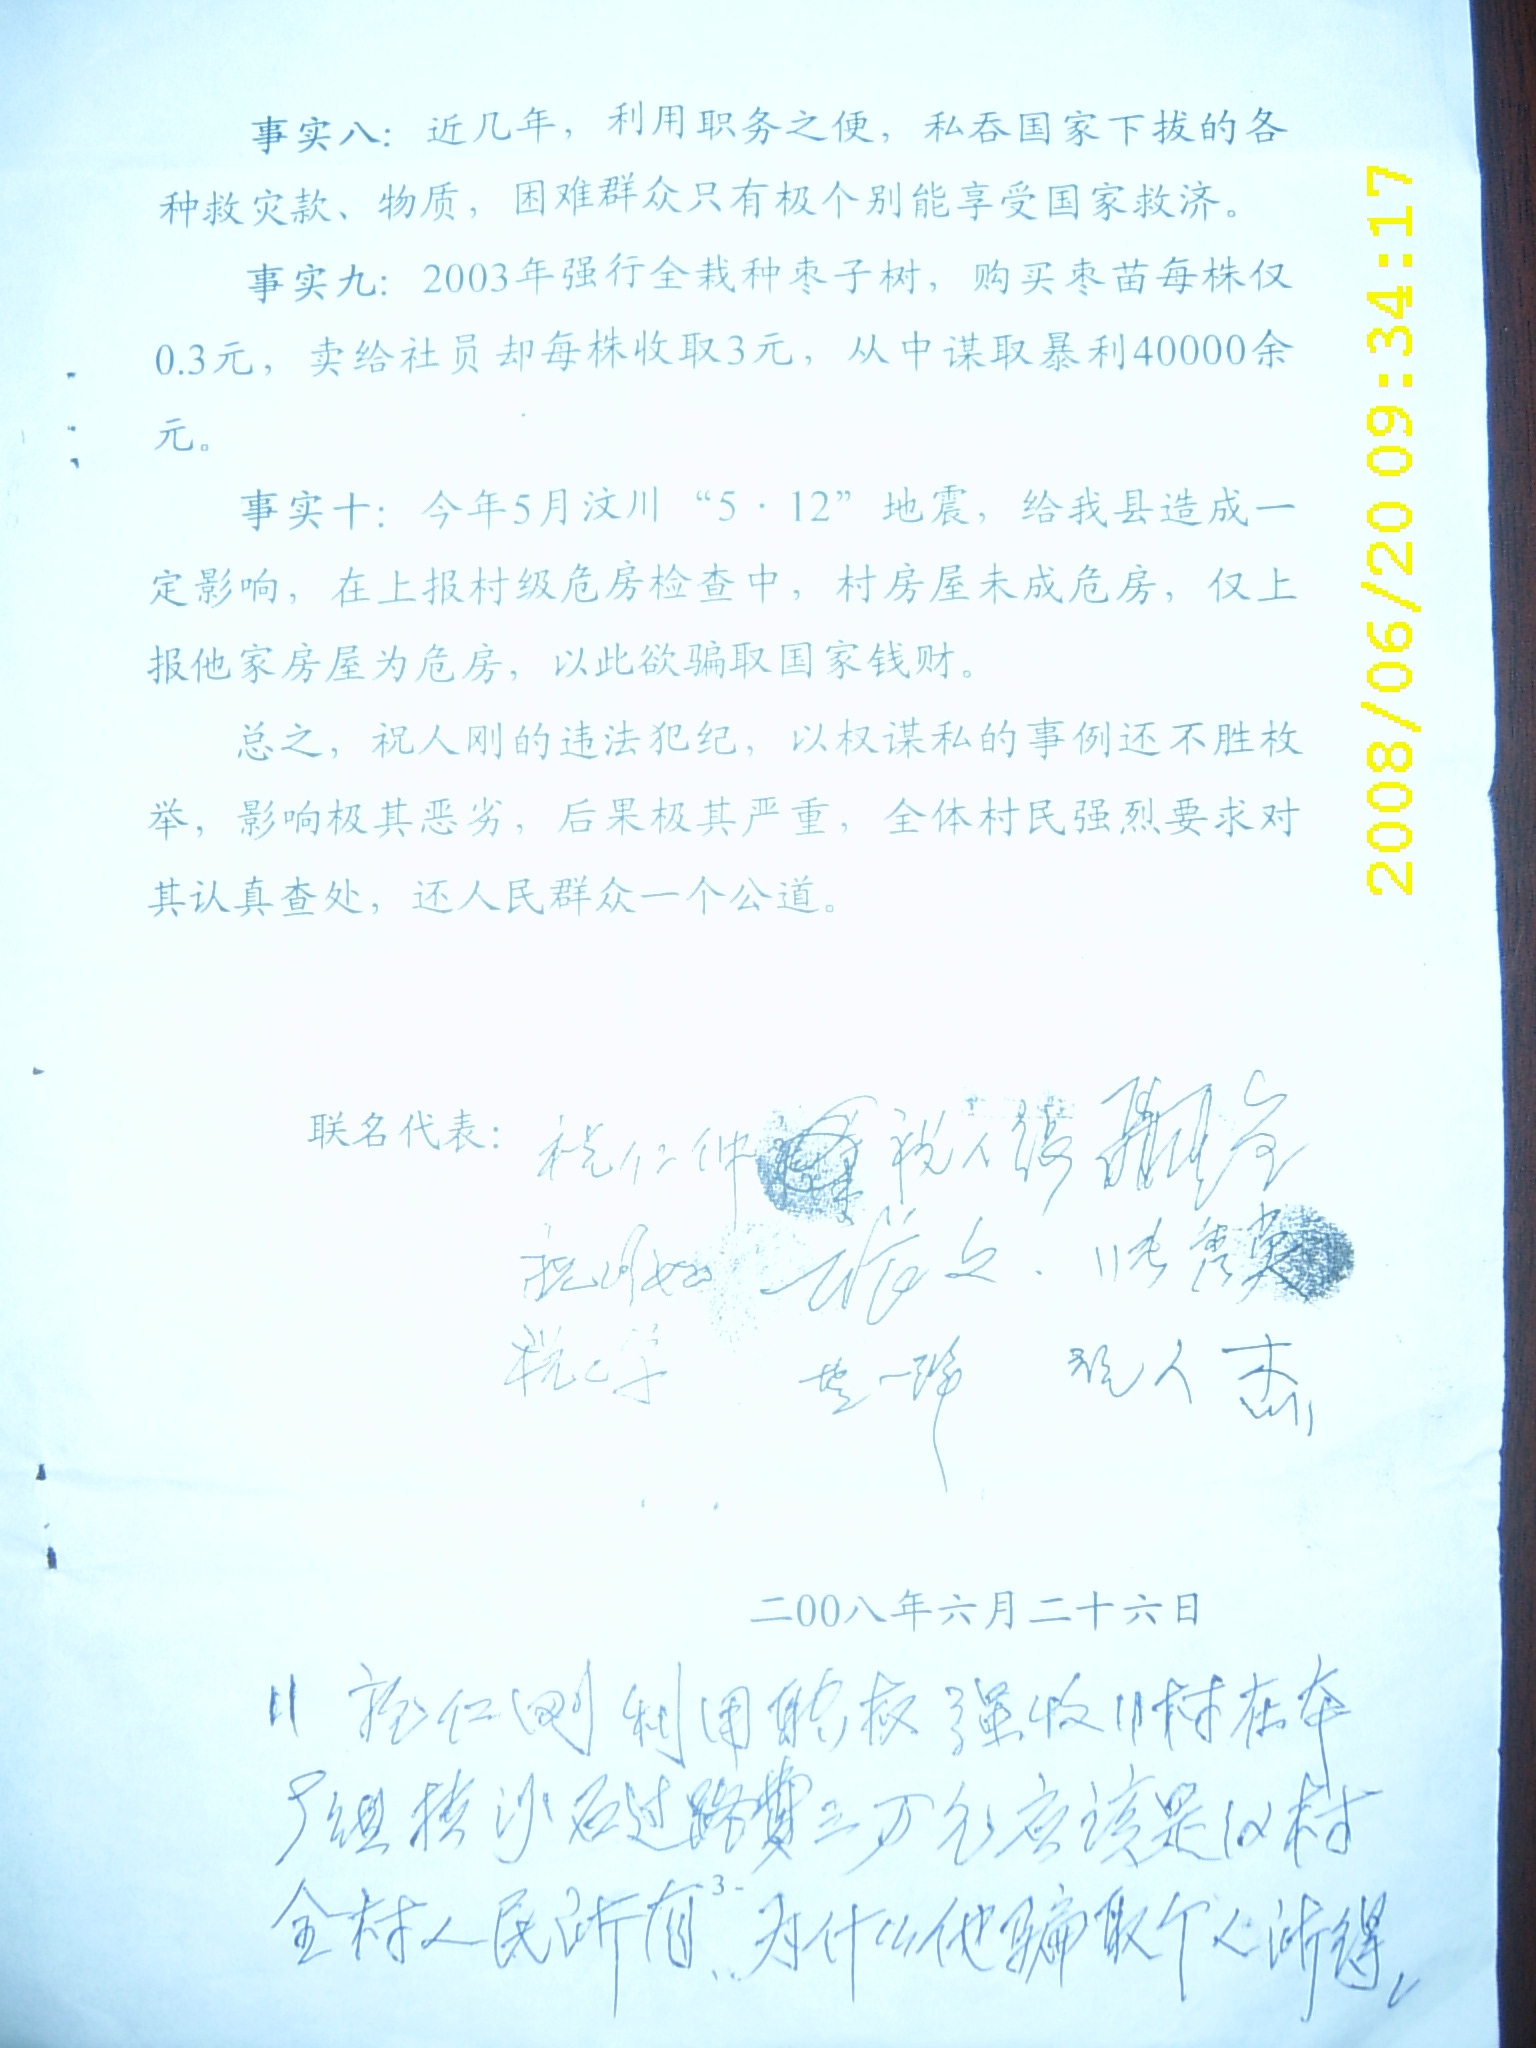 事实八：近几年，利用职务之便，私吞国家下拔的各
种救灾款、物质，困难群众只有极个别能享受国家救济。
事实九：2003年强行全栽种枣子树，购买枣苗每株仅
0.3元，卖给社员却每株收取3元，从中谋取暴利40000余
元。
事实十：今年5月汶川“5·12”地震，给我县造成一
定影响，在上报村级危房检查中，村房屋未成危房，仅上
报他家房屋为危房，以此欲骗取国家钱财。
总之，祝人刚的违法犯纪，以权谋私的事例还不胜枚
举，影响极其恶劣，后果极其严重，全体村民强烈要求对
其认真查处，还人民群众一个公道。
联名代表：祝仁仲 祝人
文 秀英
祝人杰
二00八年六月二十六日
11 祝仁刚利用职权强收11村在本
组 沙石过路费三万元应该是以村
全村人民所有、为什么他骗取个人所得，
-3-
2008/06/20 09:34:17